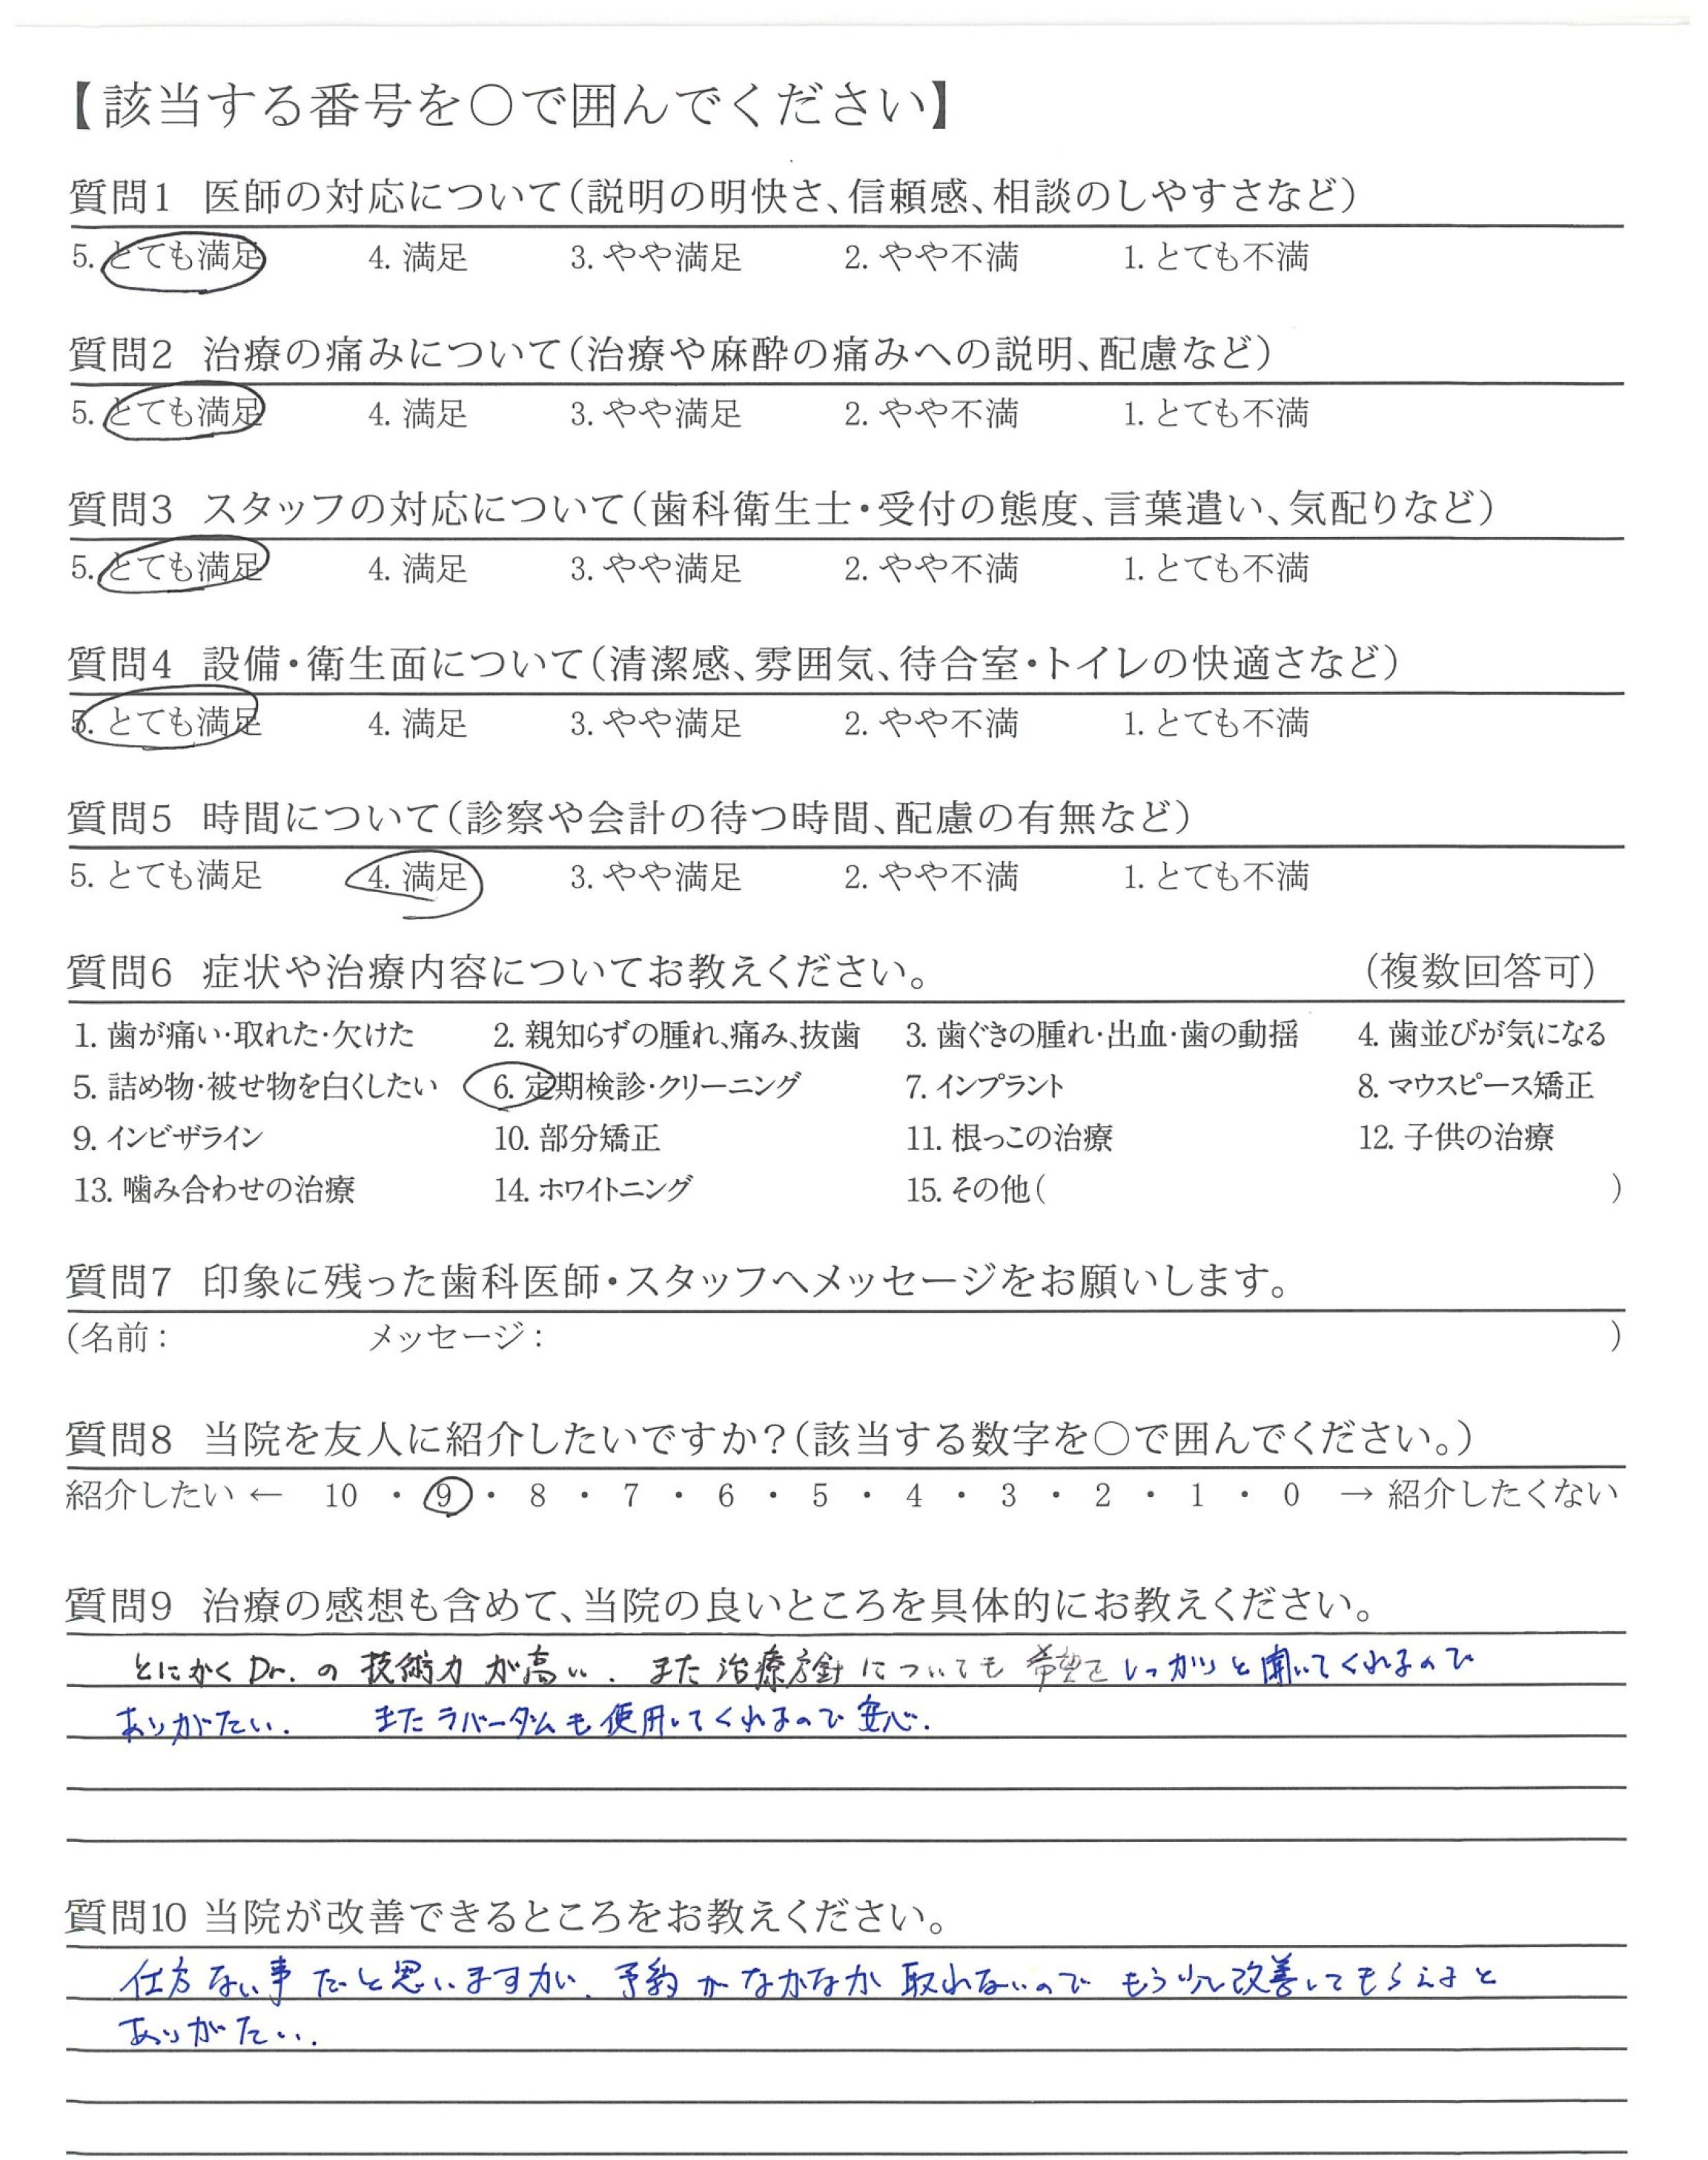 【該当する番号を○で囲んでください】
質問1 医師の対応について(説明の明快さ、信頼感、相談のしやすさなど)
5. とても満足 4. 満足 3. やや満足 2. やや不満 1. とても不満
質問2 治療の痛みについて(治療や麻酔の痛みへの説明、配慮など)
5. とても満足 4. 満足 3. やや満足 2. やや不満 1. とても不満
質問3 スタッフの対応について(歯科衛生士・受付の態度、言葉遣い、気配りなど)
5. とても満足 4. 満足 3. やや満足 2. やや不満 1. とても不満
質問4 設備・衛生面について(清潔感、雰囲気、待合室・トイレの快適さなど)
5. とても満足 4. 満足 3. やや満足 2. やや不満 1. とても不満
質問5 時間について(診察や会計の待つ時間、配慮の有無など)
5. とても満足 4. 満足 3. やや満足 2. やや不満 1. とても不満
質問6 症状や治療内容についてお教えください。 (複数回答可)
1. 歯が痛い・取れた・欠けた 2. 親知らずの腫れ、痛み、抜歯 3. 歯ぐきの腫れ・出血・歯の動揺 4. 歯並びが気になる
5. 詰め物・被せ物を白くしたい 6. 定期検診・クリーニング 7. インプラント 8. マウスピース矯正
9. インビザライン 10. 部分矯正 11. 根っこの治療 12. 子供の治療
13. 噛み合わせの治療 14. ホワイトニング 15. その他( )
質問7 印象に残った歯科医師・スタッフへメッセージをお願いします。
(名前: メッセージ: )
質問8 当院を友人に紹介したいですか?(該当する数字を○で囲んでください。)
紹介したい ← 10 ・ 9 ・ 8 ・ 7 ・ 6 ・ 5 ・ 4 ・ 3 ・ 2 ・ 1 ・ 0 → 紹介したくない
質問9 治療の感想も含めて、当院の良いところを具体的にお教えください。
とにかくDr.の技術力が高い. また治療方針についても希望をしっかりと聞いてくれるので
ありがたい. またラバーダムも使用してくれるので安心.
質問10 当院が改善できるところをお教えください。
仕方ない事だと思いますが、予約がなかなか取れないのでもう少し改善してもらえると
ありがたい.